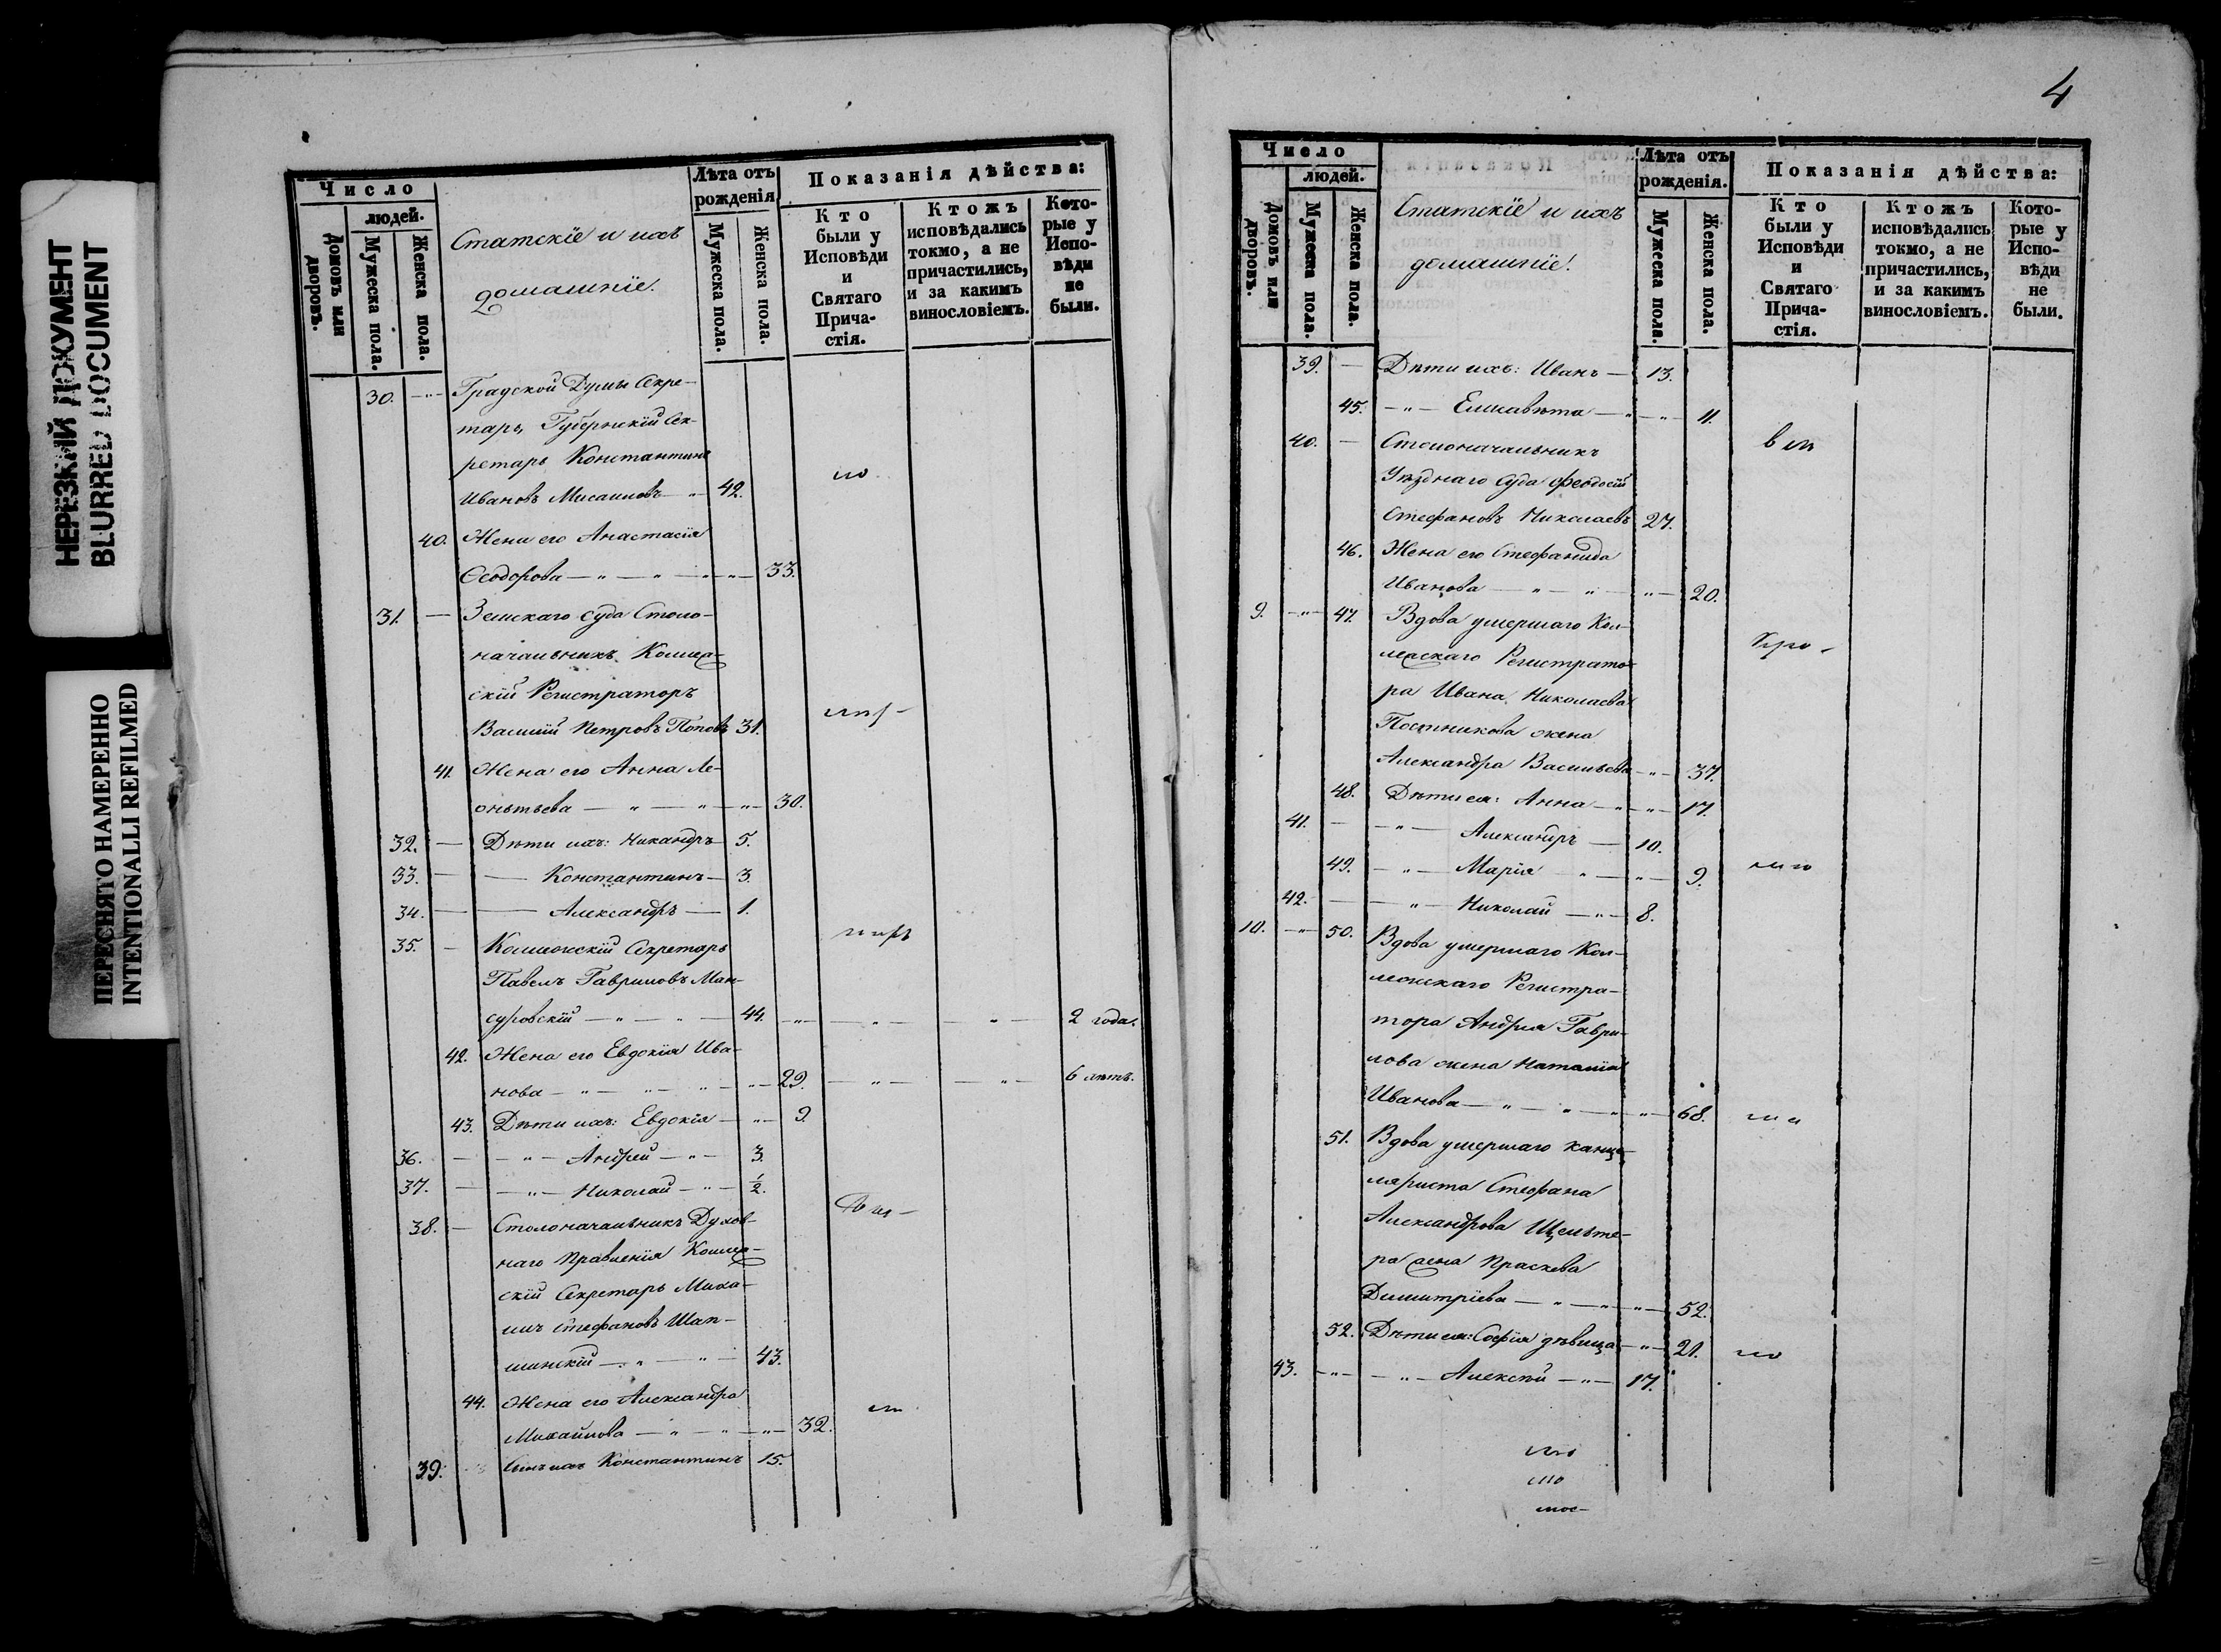 НЕРЕЗКИЙ ДОКУМЕНТ
BLURRED DOCUMENT
ПЕРЕСНЯТО НАМЕРЕННО
INTENTIONALLI REFILMED
Число
людей.
Домовъ или дворовъ.
Мужеска пола.
Женска пола.
Статскіе и ихъ
домашніе.
Лѣта отъ рожденія
Мужеска пола.
Женска пола.
Показанія дѣйства:
Кто были у Исповѣди и Святаго Прича-стія.
Ктожъ исповѣдались токмо, а не причастились, и за какимъ винословіемъ.
Кото-рые у Испо-вѣди не были.
30. Градской Думы Секре-
тарь, Губернскій Сек-
ретарь Константинъ
Ивановъ 42.
40. Жена его Анастасія
Ѳеодорова 33.
31. Земскаго Суда Столо-
начальникъ Коллеж-
скій Регистраторъ
Василій Петровъ Поповъ 31.
41. Жена его Анна Ле-
онтьева 30.
32. Дѣти ихъ: Никандръ 5.
33. Константинъ 3.
34. Александръ 1.
35. Коллежскій Секретарь
Павелъ Гавриловъ Ман-
суровскій 44. 2 года.
42. Жена его Евдокія Ива-
нова 29. 6 лѣтъ.
43. Дѣти ихъ: Евдокія 9.
36. Андрей 3.
37. Николай ½.
38. Столоначальникъ Духов-
наго Правленія Коллеж-
скій Секретарь Миха-
илъ Стефановъ Шап-
шинскій 43.
44. Жена его Александра
Михайлова 32.
39. Сынъ ихъ Константинъ 15.
4
Число
людей.
Домовъ или дворовъ.
Мужеска пола.
Женска пола.
Статскіе и ихъ
домашніе.
Лѣта отъ рожденія.
Мужеска пола.
Женска пола.
Показанія дѣйства:
Кто были у Исповѣди и Святаго Прича-стія.
Ктожъ исповѣдались токмо, а не причастились, и за какимъ винословіемъ.
Кото-рые у Испо-вѣди не были.
39. Дѣти ихъ: Иванъ 13.
45. Елисавета 11.
40. Столоначальникъ
Уѣзднаго Суда Феодосій
Стефановъ Николаевъ 27.
46. Жена его Стефанида
Иванова 20.
9. 47. Вдова умершаго Кол-
лежскаго Регистрато-
ра Ивана Николаева
Постникова жена
Александра Васильева 37.
48. Дѣти ея: Анна 17.
41. Александръ 10.
49. Марія 9.
42. Николай 8.
10. 50. Вдова умершаго Кол-
лежскаго Регистра-
тора Андрея Гаври-
лова жена Наталія
Иванова 68.
51. Вдова умершаго канце-
ляриста Стефана
Александрова
жена Праскева
Димитріева 52.
52. Дѣти ея: Софія дѣвица 21.
43. Алексѣй 17.